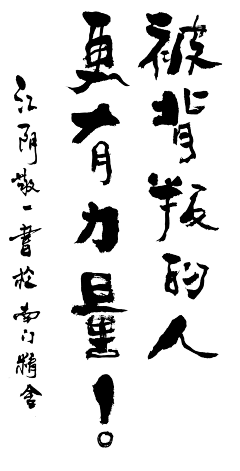 被背叛的人
更有力量！
江阴敬一书於南门精舍